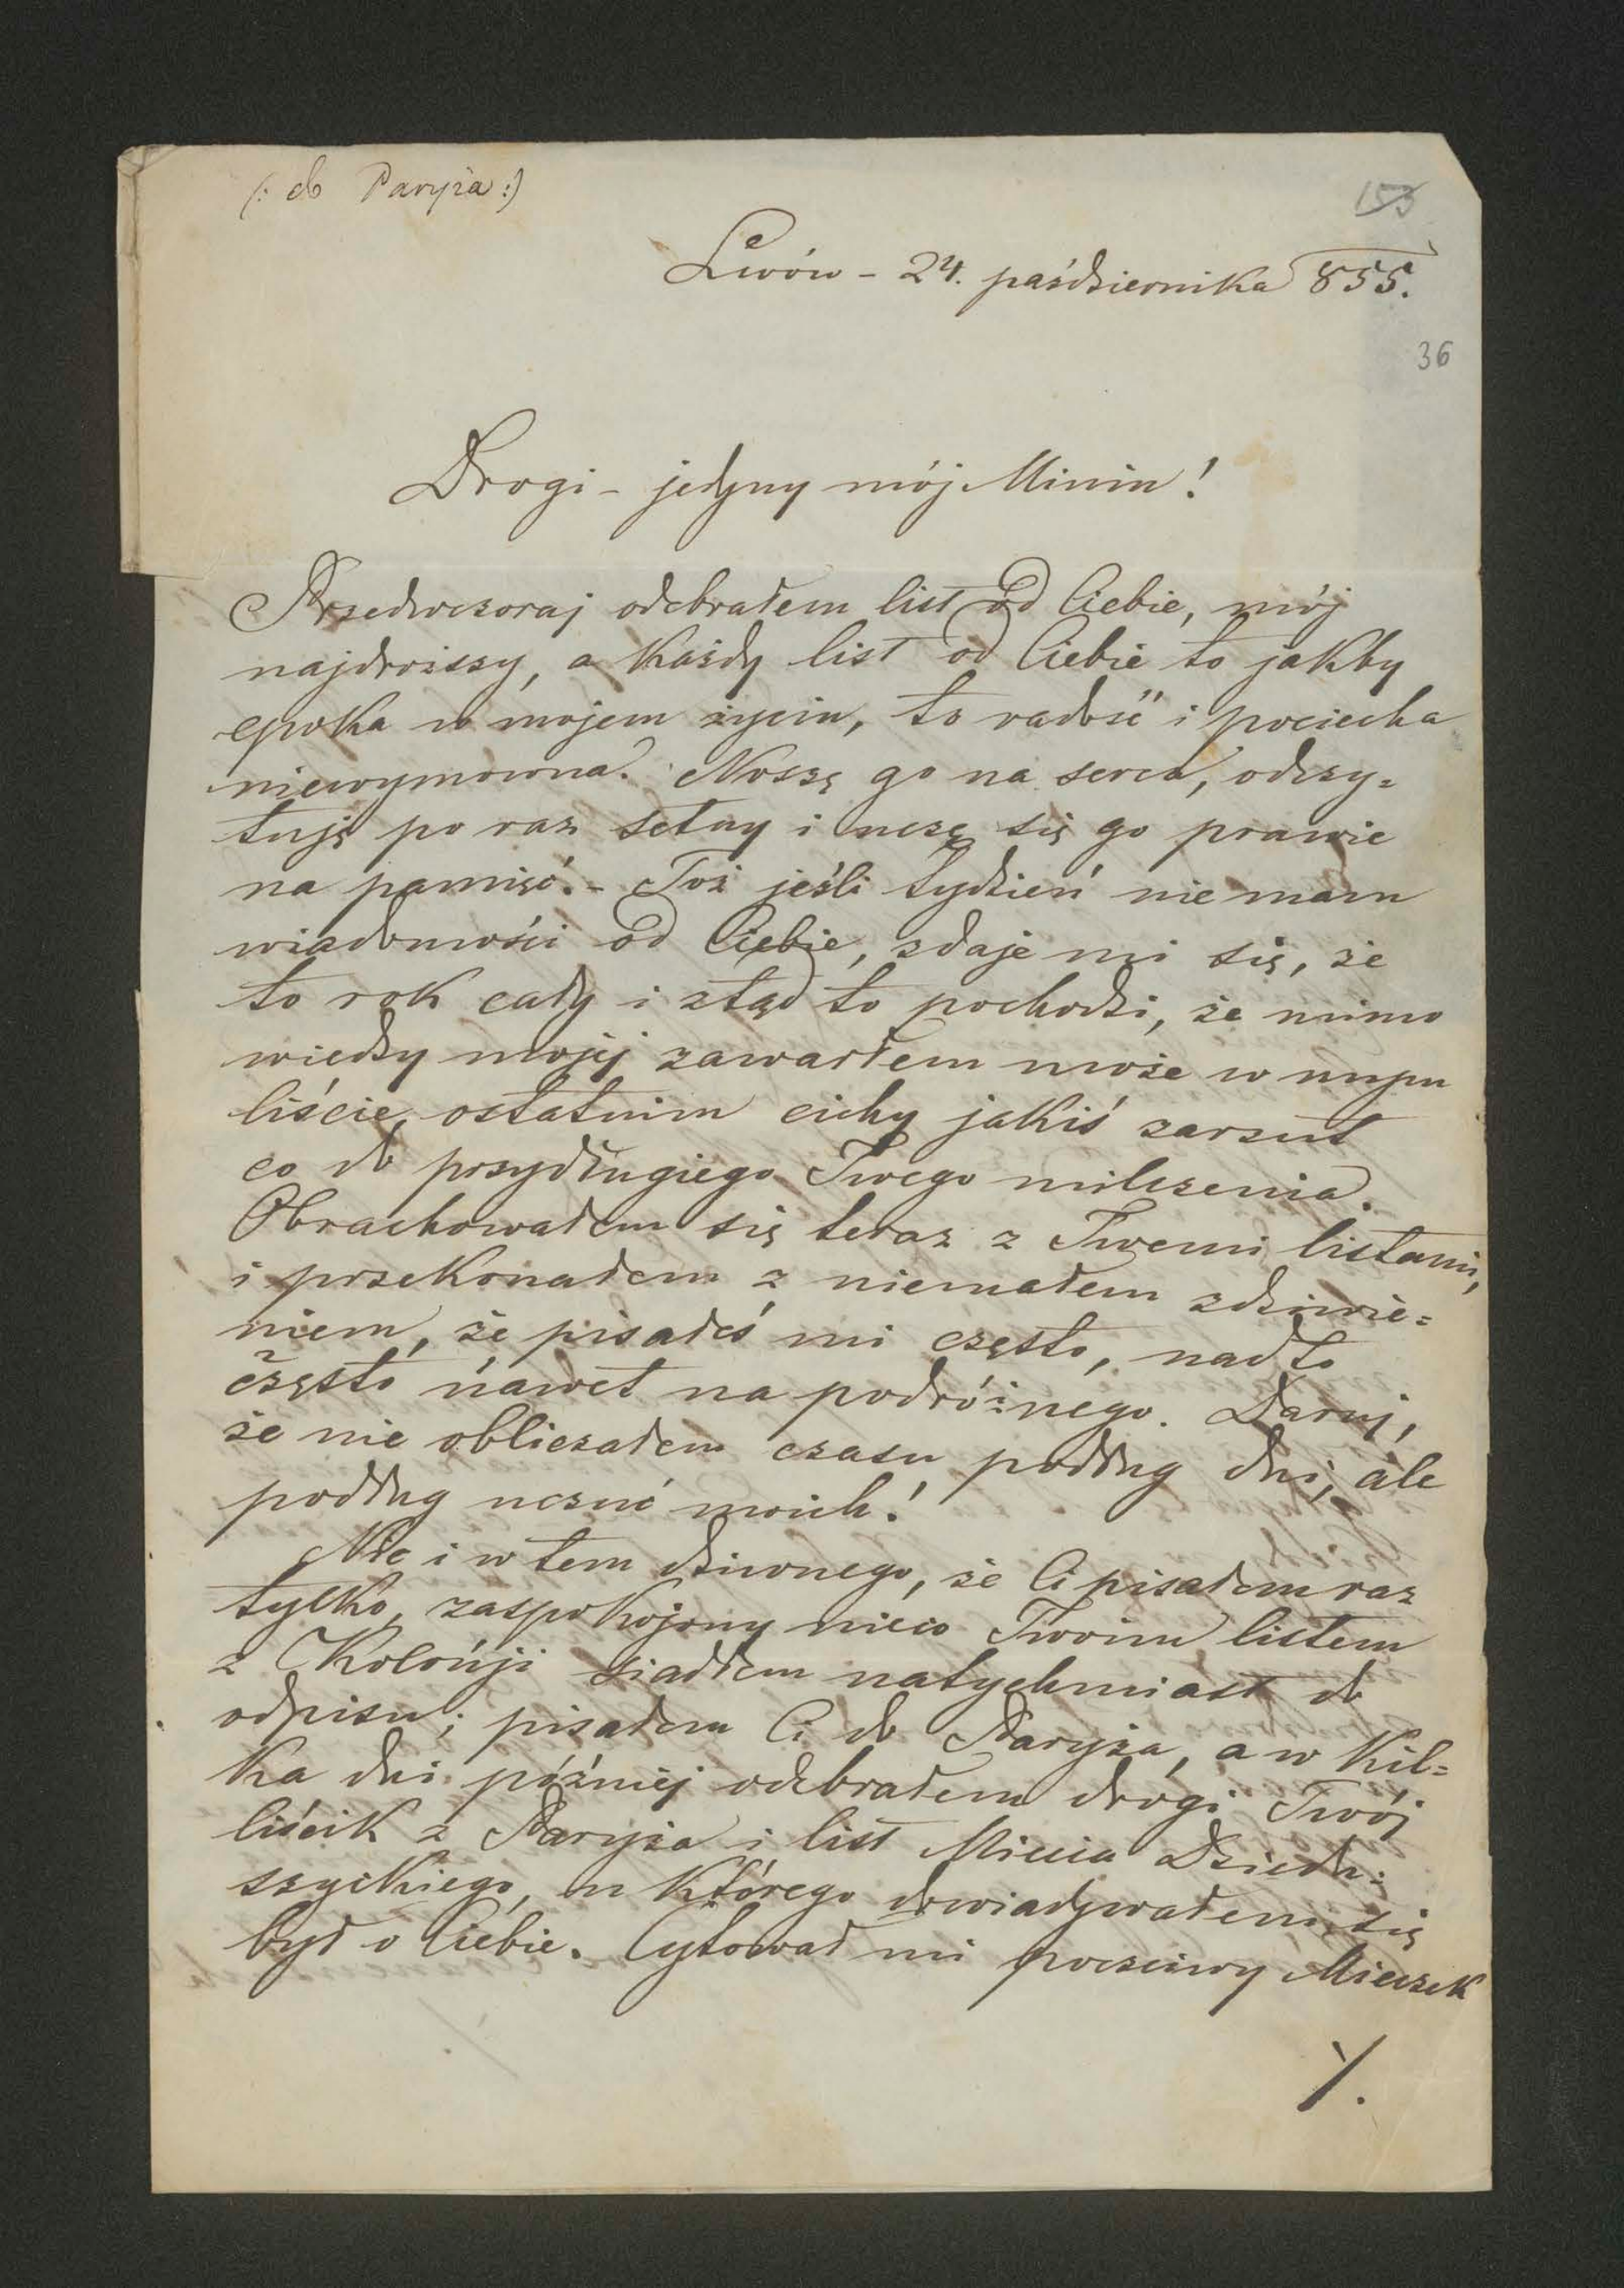 (: do Paryża :)
153
Lwów - 24. października 855.
36
Drogi - jedyny mój Miniu!
Przedwczoraj odebrałem list od Ciebie, mój
najdroższy, a każdy list od Ciebie to jakby
epoka w mojem życiu, to radość i pociecha
niewymowna. Noszę go na sercu, odczy=
tuję po raz setny i uczę się go prawie
na pamięć. - Toż jeśli tydzień nie mam
wiadomości od Ciebie, zdaje mi się, że
to rok cały i ztąd to pochodzi, że mimo
wiedzy mojej zawarłem może w mym
liście ostatnim cichy jakiś zarzut
co do przydługiego Twego milczenia.
Obrachowałem się teraz z Twemi listami,
i przekonałem z niemałem zdziwie=
niem, że pisałeś mi często, nadto
często nawet na podróżnego. Daruj,
że nie obliczałem czasu podług dni, ale
podług uczuć moich!
Nic i w tem dziwnego, że Ci pisałem raz
tylko, zaspokojony nieco Twoim listem
z Kolońji siadłem natychmiast do
odpisu; pisałem Ci do Paryża, a w kil=
ka dni później odebrałem drogi Twój
liścik z Paryża i list Miecia Dziedu=
szyckiego, u którego dowiadywałem się
był o Ciebie. Cytował mi poczciwy Mieczek
./.